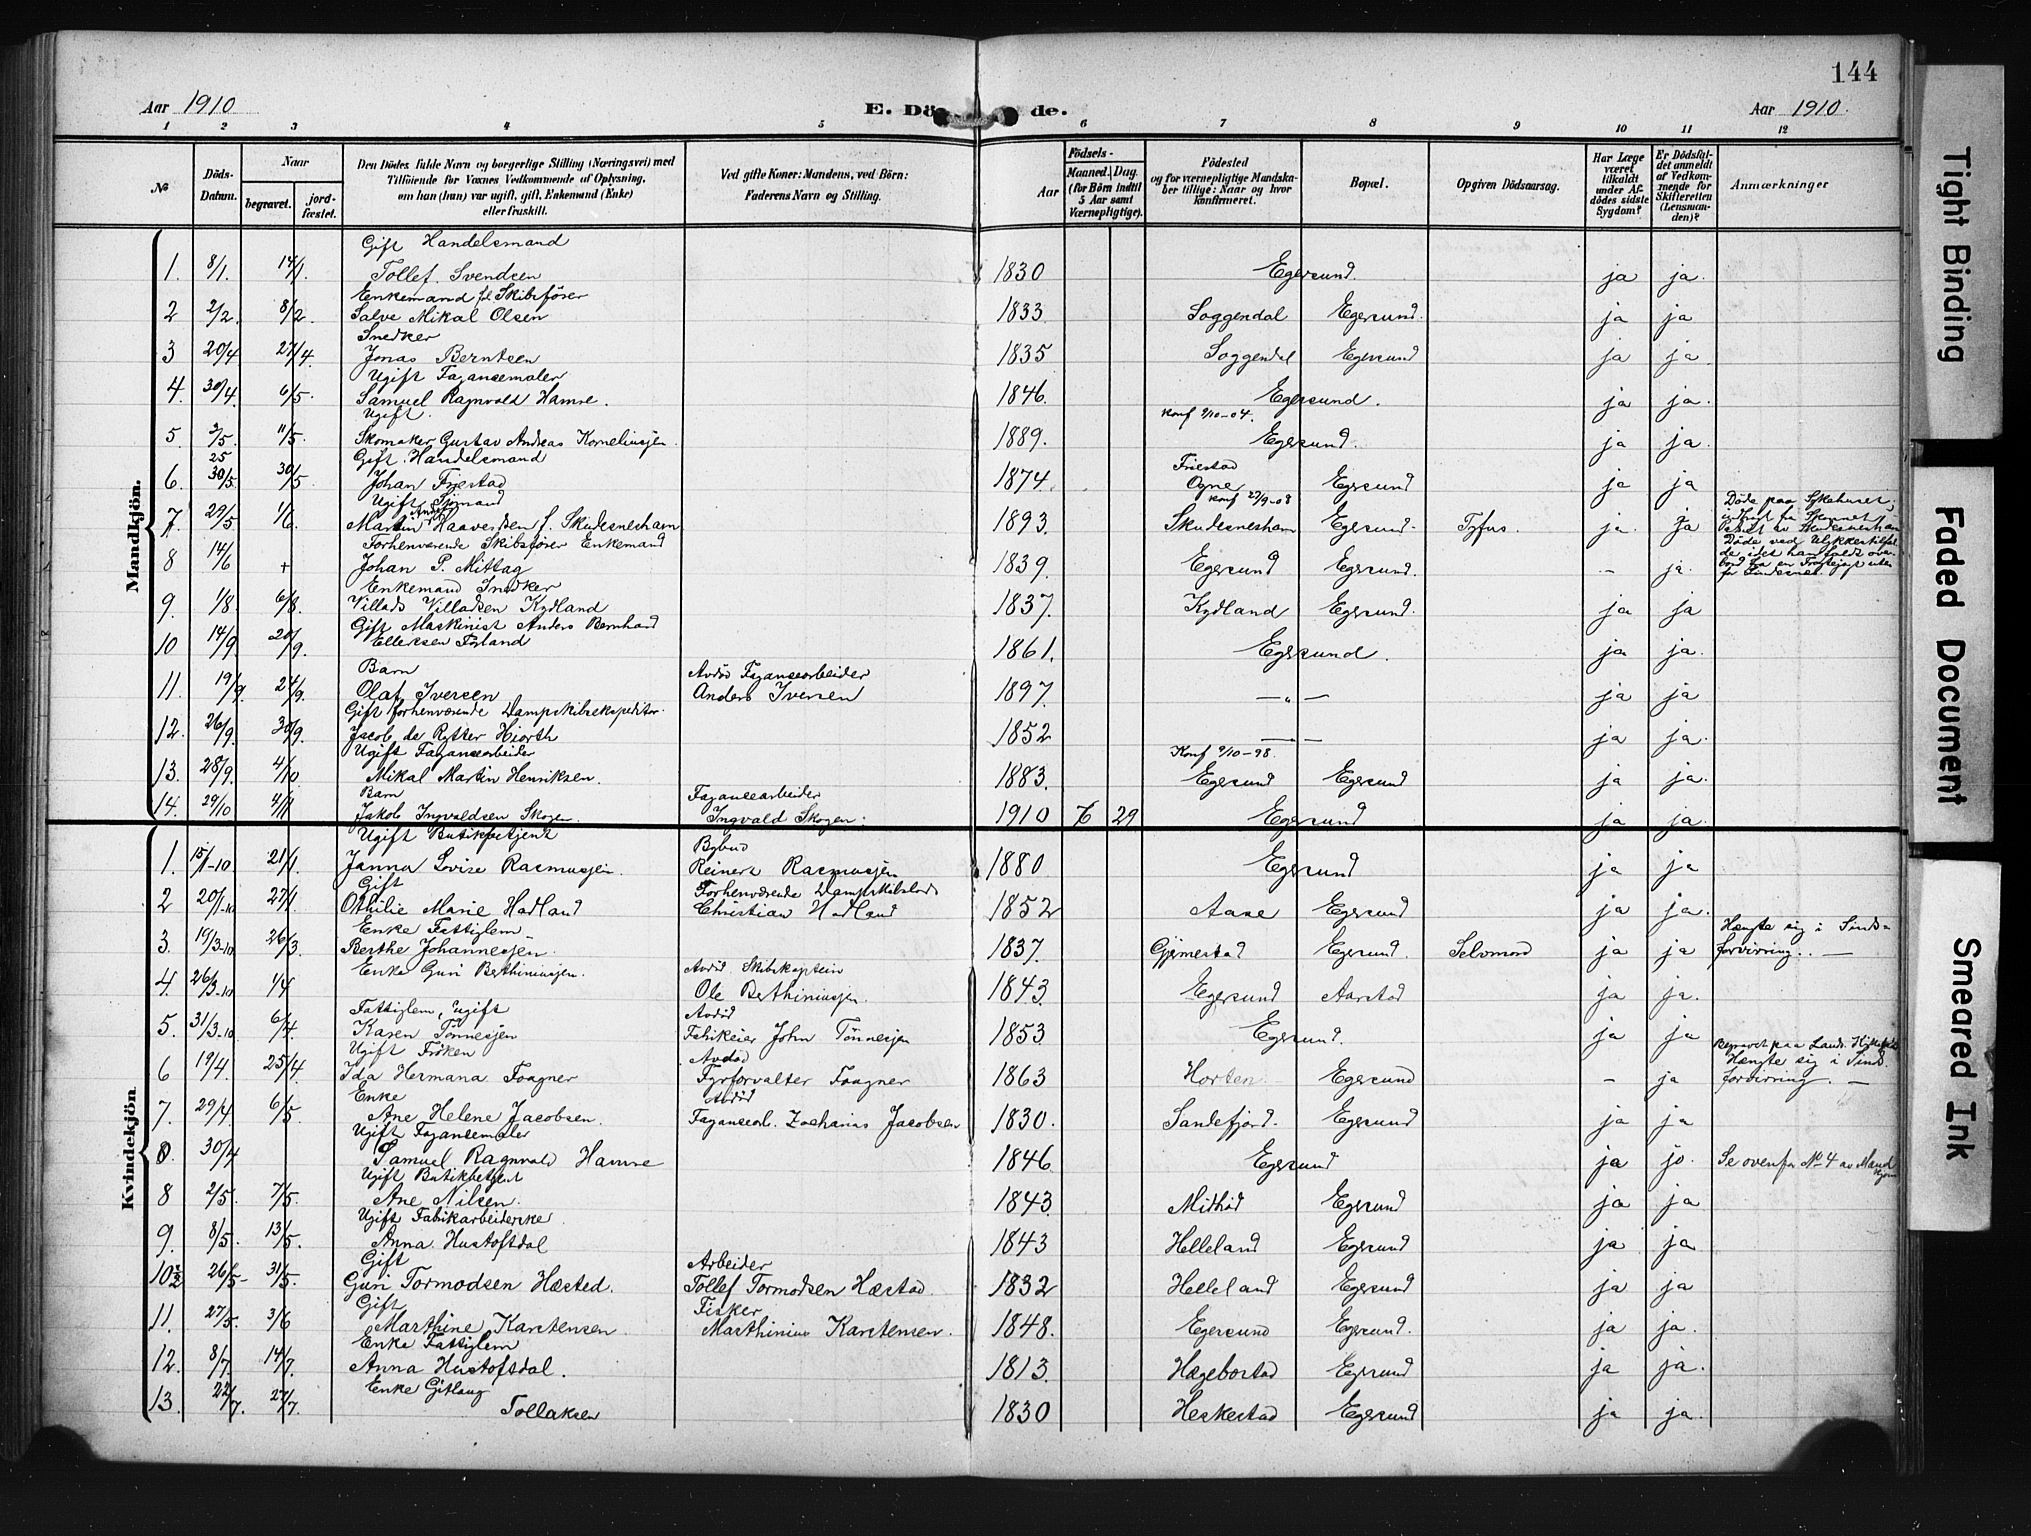 144
Aar 1910
E. Dö de.
Aar 1910.
1 2 3 4 5 6 7 8 9 10 11 12
No
Döds-Datum.
Naar
begravet.
jord-fæstet.
Den Dödes fulde Navn og borgerlige Stilling (Næringsvei) med
Tilföiende for Voxnes Vedkommende af Oplysning,
om han (hun) var ugift, gift, Enkemand (Enke)
eller fraskilt.
Ved gifte Koner: Mandens, ved Börn:
Faderens Navn og Stilling.
Aar
Födsels-
Maaned. Dag.
(for Börn indtil
5 Aar samt
Værnepligtige).
Födested
og for værnepligtige Mandska-
ber tillige: Naar og hvor
konfirmeret.
Bopæl.
Opgiven Dödsaarsag.
Har Læge
været
tilkaldt
under Af-
dödes sidste
Sygdom?
Er Dödsfal-
det anmeldt
af Vedkom-
mende for
Skifteretten
(Lensman-
den)?
Anmærkninger
Mandkjön.
Gift Handelsmand
1. 8/1. 14/1. Tollef Svendsen 1830 Egersund. ja ja.
Enkemand f. Skibsfører
2 2/2. 8/2. Salve Mikal Olsen 1833 Soggendal Egersund. ja ja
Snedker
3 20/4 27/4 Jonas Berntsen 1835 Soggendal Egersund ja ja
Ugift Fajansemaler
4. 30/4. 6/5. Samuel Ragnvald Hamre. 1846. Egersund. ja ja.
Ugift. Konf 2/10-04.
5. 2/5. 11/5. Skomaker Gustav Andreas Korneliussen. 1889. Egersund. ja ja.
25 Gift. Handelsmand Friestad
6. 30/5. 30/5. Johan Friestad 1874. Ogne Egersund ja ja
Ugift Sjömand Konf 27/9-08
7. 29/5 1/6. Martin Haaversen f. Skudesneshavn 1893. Skudesneshavn Egersund. Tyfus. ja. ja
Døde paa Sykehuset,
Forhenværende Skibsfører Enkemand
8 14/6 + Johan P. Mittag 1839. Egersund Egersund. – ja.
Døde ved Ulykkestilfæl-
de idet han faldt over-
bord fra en Fragtejagt uten-
for Lindesnes.
Enkemand Snedker
9. 1/8. 6/8. Villads Villadsen Kydland 1837. Kydland Egersund. ja ja
Gift Maskinist Anders Bernhard
10 14/9. 20/9. Ellertsen Førland 1861. Egersund. ja ja.
Barn Avdød Fajansearbeider
11. 19/9. 24/9. Olaf Iversen Anders Iversen 1897. —„— ja ja
Gift forhenværende Dampskibsekspeditør.
12. 26/9. 30/9. Jacob de Rytter Hiorth 1852 —— ja ja.
Ugift Fajansearbeider Konf 2/10-98.
13. 28/9. 4/10 Mikal Martin Henriksen. 1883. Egersund Egersund ja ja.
Barn Fajansearbeider
14. 29/10 4/11 Jakob Ingvaldsen Skogen Ingvald Skogen. 1910 6 29 Egersund ja ja.
Kvindekjön
Ugift Butikbetjent Bybud
1. 15/1-10 21/1. Janna Lovise Rasmussen. Reinert Rasmussen 1880 Egersund ja ja
Gift Forhenværende Dampskibslods
2 20/1-10 27/1. Othilie Marie Hadland Christian Hadland 1852 Aase Egersund ja ja.
Enke Fattiglem Hængte sig i Sinds-
3. 19/3-10 26/3. Berthe Johannessen. 1837. Gjemestad Egersund. Selvmord ja ja forvirring. —
Enke Guri Berthiniussen. Avdød Skibskaptein
4. 26/3-10 1/4 Ole Berthiniussen. 1843. Egersund Aarstad ja ja.
Fattiglem, ugift Avdød
5. 31/3-10 6/4 Karen Tønnessen John Tønnessen 1853 Egersund. ja ja
Ugift Frøken Avdød Hængte sig i Sinds
6 19/4. 25/4. Ida Hermana Faagner Fyrforvalter Faagner 1863 Horten Egersund – ja forvirring. —
Enke Avdød
7. 29/4. 6/5. Ane Helene Jacobsen. Fajansearb. Zacharias Jacobsen 1830. Sandefjord. Egersund ja ja
Ugift Fajansemaler
8. 30/4 Samuel Ragnvald Hamre 1846 Egersund ja ja. Se ovenfor No 4 av Mand
kjøn
Ugift Butikbetjent
8 2/5. 7/5. Ane Nilsen. 1843. Midbød Egersund ja ja
Ugift Fabrikarbeiderske.
9. 8/5. 13/5. Anna Hustoftdal 1843 Helleland Egersund ja ja
Gift Arbeider
10 26/5- 31/5. Guri Tormodsen Hæstad. Tollef Tormodsen Hæstad. 1832 Helleland Egersund ja ja
Gift Fisker
11. 27/5. 3/6 Marthine Karstensen. Marthinius Karstensen. 1848. Egersund Egersund. ja ja.
Enke Fattiglem
12. 8/7. 14/7. Anna Hustoftdal. 1813. Hægebostad Egersund ja ja.
Enke Gitlaug
13. 22/7. 27/7. Tollaksen 1830 Heskestad Egersund ja ja.
Tight Binding
Faded Document
Smeared Ink